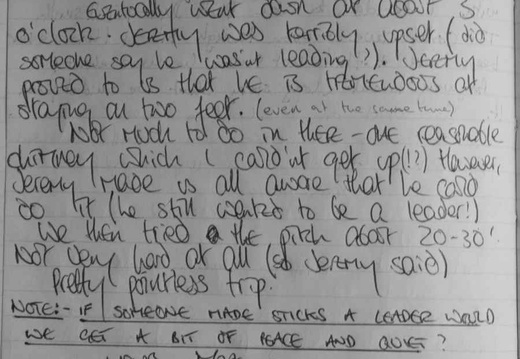 Eventually went down at about 5
o'clock. Jeremy was terribly upset (did
someone say he wasn't leading!?). Jeremy
proved to us that he is tremendous at
staying on two feet. (even at the same time)
Not much to do in there - one reasonable
chimney which I could'nt get up(!?) However,
Jeremy made us all aware that he could
do it (he still wanted to be a leader!)
We then tried the pitch about 20-30'.
Not very hard at all (so Jeremy said)
Pretty pointless trip.
NOTE:- IF SOMEONE MADE STICKS A LEADER WOULD
WE GET A BIT OF PEACE AND QUIET?